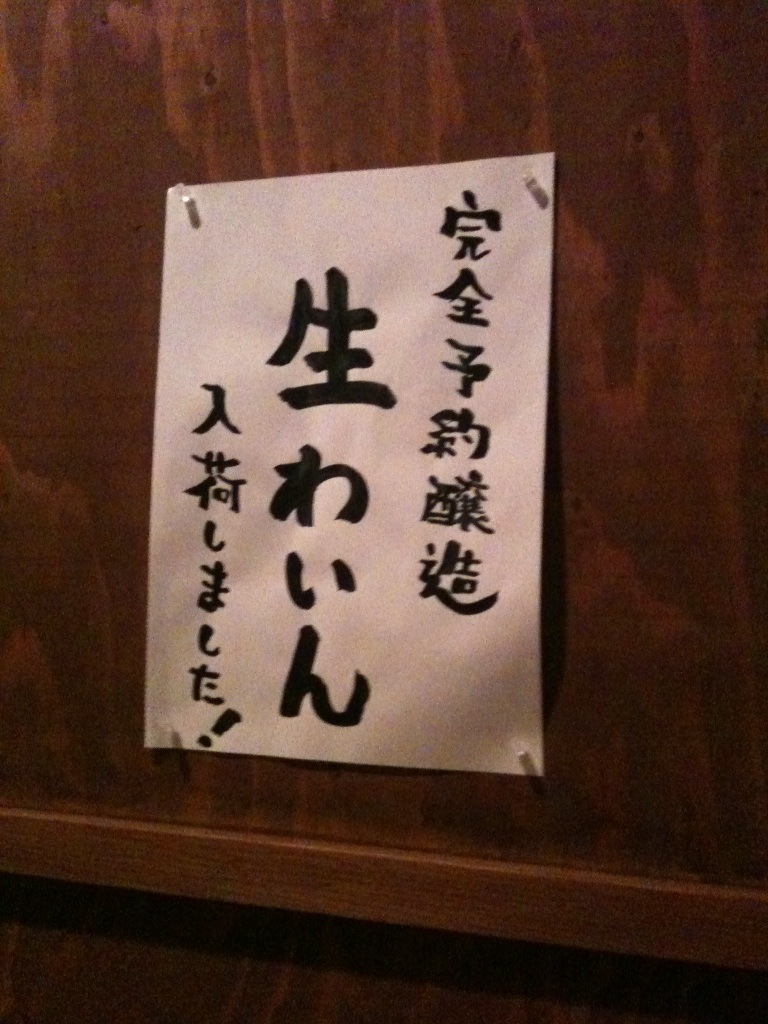 完全予約醸造
生わいん
入荷しました!